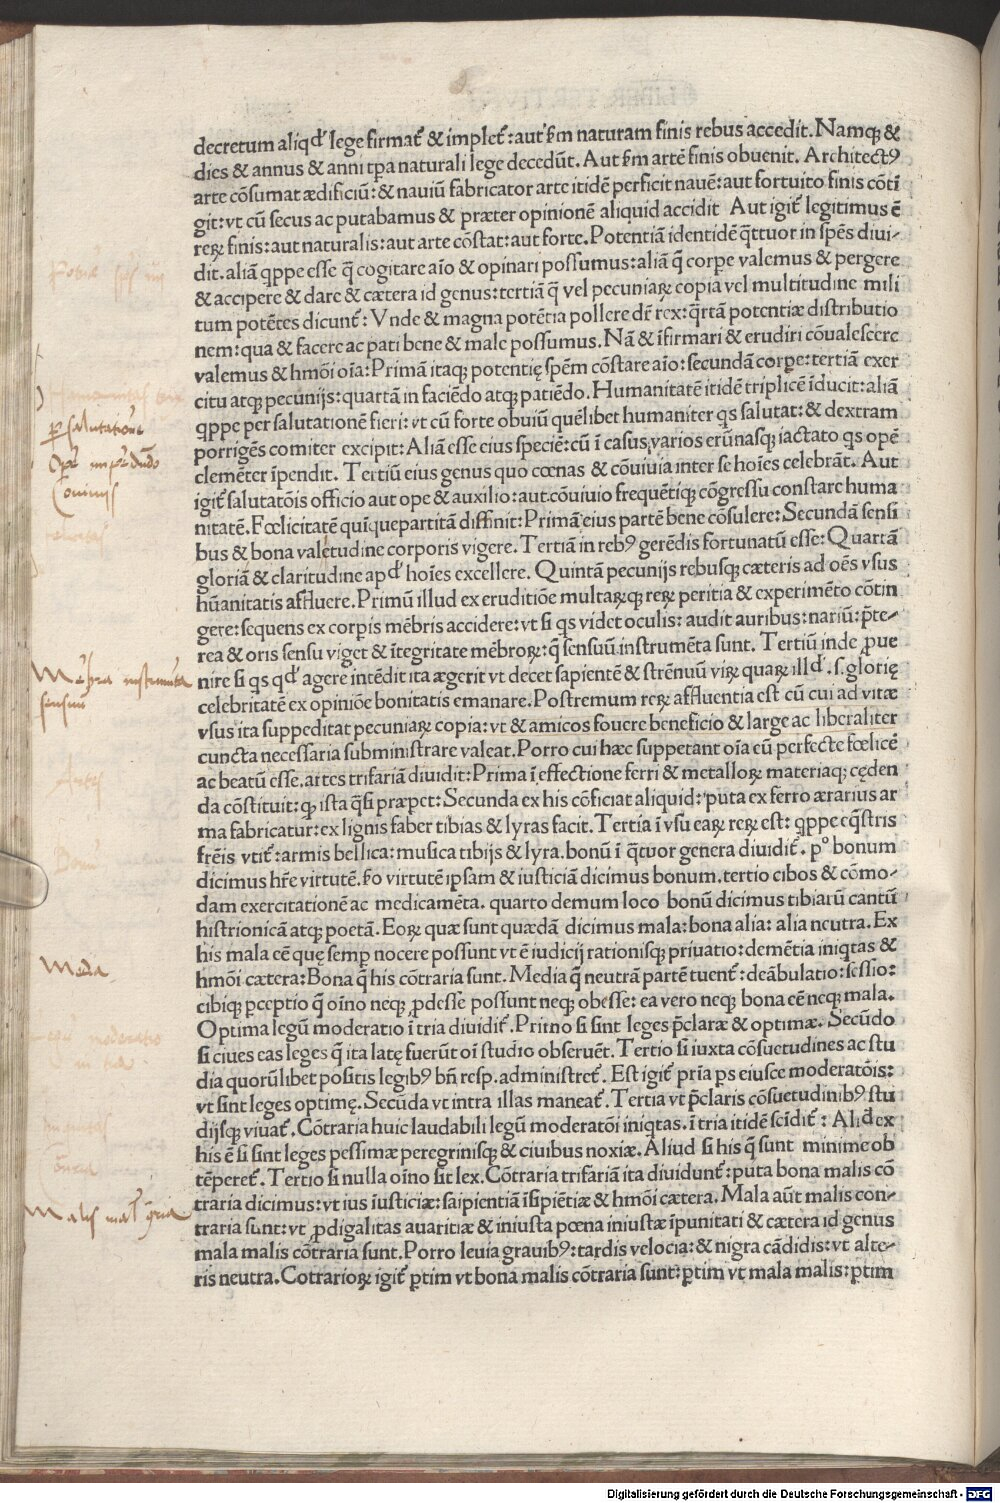 decretum aliqđ lege firmat᷑ & implet᷑: aut ẜm naturam finis rebus accedit. Namqꝫ &
dies & annus & anni tꝑa naturali lege decedũt. Aut ẜm artẽ finis obuenit. Architectꝰ
arte cõsumat ædificiũ: & nauiũ fabricator arte itidẽ perficit nauẽ: aut fortuito finis cõtĩ
git: vt cũ secus ac putabamus & præter opinionẽ aliquid accidit Aut igit᷑ legitimus ẽ
reꝝ finis: aut naturalis: aut arte cõstat: aut forte. Potentiã identidẽ q̃ttuor in spẽs diui-
dit. aliã qꝓpe esse q̃ cogitare aĩo & opinari possumus: aliã q̃ corꝑe valemus & pergere
& accipere & dare & cætera id genus: tertiã q̃ vel pecuniaꝝ copia vel multitudine mili
tum potẽtes dicunt᷑: Vnde & magna potẽtia pollere dr̃ rex: q̃rtã potentiæ distributio
nem: qua & facere ac pati bene & male possumus. Nã & ĩfirmari & erudiri cõualescere
valemus & hmõi oĩa: Primã itaqꝫ potentię spẽm cõstare aĩo: secundã corꝑe: tertiã exer
citu atqꝫ pecunijs: quartã in faciẽdo atqꝫ patiẽdo. Humanitatẽ itidẽ triplicẽ ĩducit: aliã
qꝓpe per salutationẽ fieri: vt cũ forte obuiũ quẽlibet humaniter qs salutat: & dextram
porrigẽs comiter excipit: Aliã esse eius speciẽ: cũ ĩ casus varios erũnasqꝫ iactato qs opẽ
clemẽter ĩpendit. Tertiũ eius genus quo cœnas & cõuiuia inter se hoĩes celebrãt. Aut
igit᷑ salutatõis officio aut ope & auxilio: aut cõuiuio frequẽtiqꝫ cõgressu constare huma
nitatẽ. Fœlicitatẽ quĩquepartitã diffinit: Primã eius partẽ bene cõsulere: Secundã sensi
bus & bona valetudine corporis vigere. Tertiã in rebꝰ gerẽdis fortunatũ esse: Quartã
gloriã & claritudine apđ hoĩes excellere. Quintã pecunijs rebusqꝫ cæteris ad oẽs vsus
hũanitatis affluere. Primũ illud ex eruditiõe multaꝝqꝫ reꝝ peritia & experimẽto cõtin
gere: sequens ex corꝑis mẽbris accidere: vt si qs videt oculis: audit auribus: nariũ: p̃te-
rea & oris sensu viget & ĩtegritate mẽbroꝝ: q̃ sensuũ instrumẽta sunt. Tertiũ inde ꝓue
nire si qs qđ agere intẽdit ita ægerit vt decet sapientẽ & strẽnuũ viꝝ quaꝝ illđ. s. glorię
celebritatẽ ex opiniõe bonitatis emanare. Postremum reꝝ affluentia est cũ cui ad vitæ
vsus ita suppeditat pecuniaꝝ copia: vt & amicos fouere beneficio & large ac liberaliter
cuncta necessaria subministrare valeat. Porro cui hæc suppetant oĩa eũ perfecte fœlicẽ
ac beatũ esse. artes trifariã diuidit: Prima ĩ effectione ferri & metalloꝝ materiaqꝫ cęden
da cõstituit: ꝙ ista q̃si præpet: Secunda ex his cõficiat aliquid: puta ex ferro ærarius ar
ma fabricatur: ex lignis faber tibias & lyras facit. Tertia ĩ vsu eaꝝ reꝝ est: qꝓpe eq̃stris
frẽis vtit᷑: armis bellica: musica tibijs & lyra. bonũ ĩ q̃tuor genera diuidit᷑. pº bonum
dicimus hr̃e virtutẽ. ẜo virtutẽ ipsam & iusticiã dicimus bonum. tertio cibos & cõmo-
dam exercitationẽ ac medicamẽta. quarto demum loco bonũ dicimus tibiarũ cantũ
histrionicã atqꝫ poetã. Eoꝝ quæ sunt quædã dicimus mala: bona alia: alia neutra. Ex
his mala eẽ quę semꝑ nocere possunt vt ẽ iudicij rationisqꝫ priuatio: demẽtia iniqtas &
hmõi cætera: Bona q̃ his cõtraria sunt. Media q̃ neutrã partẽ tuent᷑: deãbulatio: sessio:
cibiqꝫ ꝑceptio q̃ oĩno neqꝫ ꝓdesse possunt neqꝫ obesse: ea vero neqꝫ bona eẽ neqꝫ mala.
Optima legũ moderatio ĩ tria diuidit᷑. Primo si sint leges p̃claræ & optimæ. Secũdo
si ciues eas leges q̃ ita latę fuerũt oĩ studio obseruẽt. Tertio si iuxta cõsuetudines ac stu
dia quorũlibet positis legibꝰ bñ resp. administret᷑. Est igit᷑ prĩa ps eiusce moderatõis:
vt sint leges optimę. Secũda vt intra illas maneat᷑. Tertia vt p̃claris cõsuetudinibꝰ stu
dijsqꝫ viuat᷑. Cõtraria huic laudabili legũ moderatõi iniqtas. ĩ tria itidẽ scĩdit᷑: Aliđ ex
his ẽ si sint leges pessimæ peregrinisqꝫ & ciuibus noxiæ. Aliud si his q̃ sunt minime ob
tẽperet᷑. Tertio si nulla oĩno sit lex. Cõtraria trifariã ita diuidunt᷑: puta bona malis cõ
traria dicimus: vt ius ĩusticiæ: saipientiã ĩsipiẽtiæ & hmõi cætera. Mala aũt malis con-
traria sunt: vt ꝓdigalitas auaritiæ & iniusta pœna iniustæ ĩpunitati & cætera id genus
mala malis cõtraria sunt. Porro leuia grauibꝰ: tardis velocia: & nigra cãdidis: vt alte-
ris neutra. Cotrarioꝝ igit᷑ ꝑtim vt bona malis cõtraria sunt: ꝑtim vt mala malis: ꝑtim
ꝑ salutationẽ
Conuiuijs
Mẽbra instrumẽta
sensuũ
Media
Digitalisierung gefördert durch die Deutsche Forschungsgemeinschaft - DFG